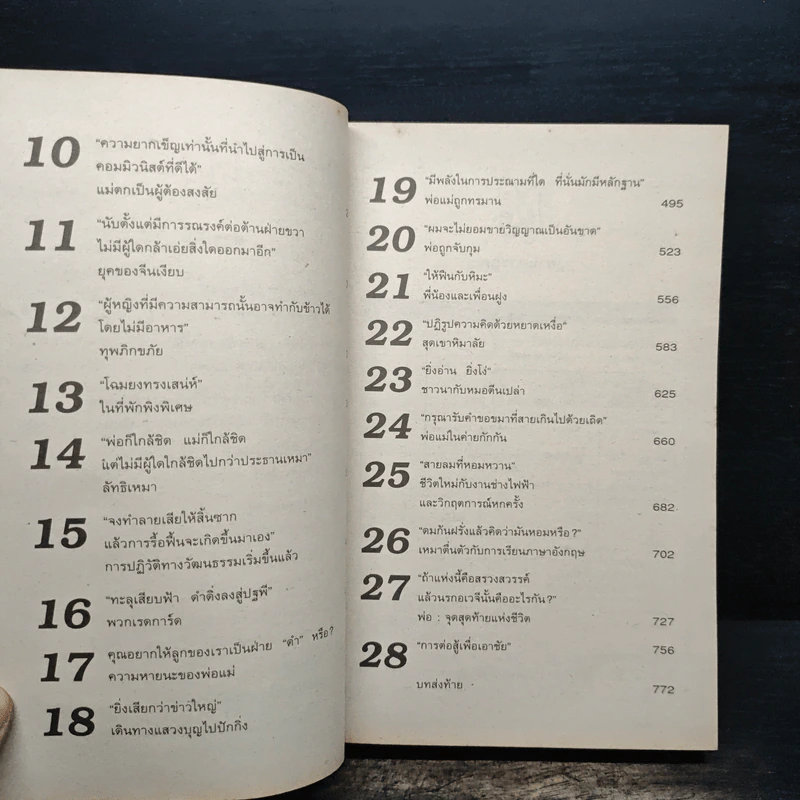 10 "ความยากเข็ญเท่านั้นที่นำไปสู่การเป็น
คอมมิวนิสต์ที่ดีได้"
แม่ตกเป็นผู้ต้องสงสัย
11 "นับตั้งแต่มีการรณรงค์ต่อต้านฝ่ายขวา
ไม่มีผู้ใดกล้าเอ่ยสิ่งใดออกมาอีก"
ยุคของจีนเงียบ
12 "ผู้หญิงที่มีความสามารถนั้นอาจทำกับข้าวได้
โดยไม่มีอาหาร"
ทุพภิกขภัย
13 "โฉมยงทรงเสน่ห์"
ในที่พักพิงพิเศษ
14 "พ่อก็ใกล้ชิด แม่ก็ใกล้ชิด
แต่ไม่มีผู้ใดใกล้ชิดไปกว่าประธานเหมา"
ลัทธิเหมา
15 "จงทำลายเสียให้สิ้นซาก
แล้วการรื้อฟื้นจะเกิดขึ้นมาเอง"
การปฏิวัติทางวัฒนธรรมเริ่มขึ้นแล้ว
16 "ทะลุเสียบฟ้า ดำดิ่งลงสู่ปฐพี"
พวกเรดการ์ด
17 คุณอยากให้ลูกของเราเป็นฝ่าย "ดำ" หรือ?
ความหายนะของพ่อแม่
18 "ยิ่งเสียกว่าข่าวใหญ่"
เดินทางแสวงบุญไปปักกิ่ง
19 "มีพลังในการประณามที่ใด ที่นั่นมักมีหลักฐาน"
พ่อแม่ถูกทรมาน 495
20 "ผมจะไม่ยอมขายวิญญาณเป็นอันขาด"
พ่อถูกจับกุม 523
21 "ให้ฟืนกับหิมะ"
พี่น้องและเพื่อนฝูง 556
22 "ปฏิรูปความคิดด้วยหยาดเหงื่อ"
สุดเขาหิมาลัย 583
23 "ยิ่งอ่าน ยิ่งโง่"
ชาวนากับหมอตีนเปล่า 625
24 "กรุณารับคำขอขมาที่สายเกินไปด้วยเถิด"
พ่อแม่ในค่ายกักกัน 660
25 "สายลมที่หอมหวาน"
ชีวิตใหม่กับงานช่างไฟฟ้า
และวิกฤตการณ์หกครั้ง 682
26 "ดมก้นฝรั่งแล้วคิดว่ามันหอมหรือ?"
เหมาตื่นตัวกับการเรียนภาษาอังกฤษ 702
27 "ถ้าแห่งนี้คือสรวงสวรรค์
แล้วนรกอเวจีนั้นคืออะไรกัน?"
พ่อ : จุดสุดท้ายแห่งชีวิต 727
28 "การต่อสู้เพื่อเอาชัย" 756
บทส่งท้าย 772